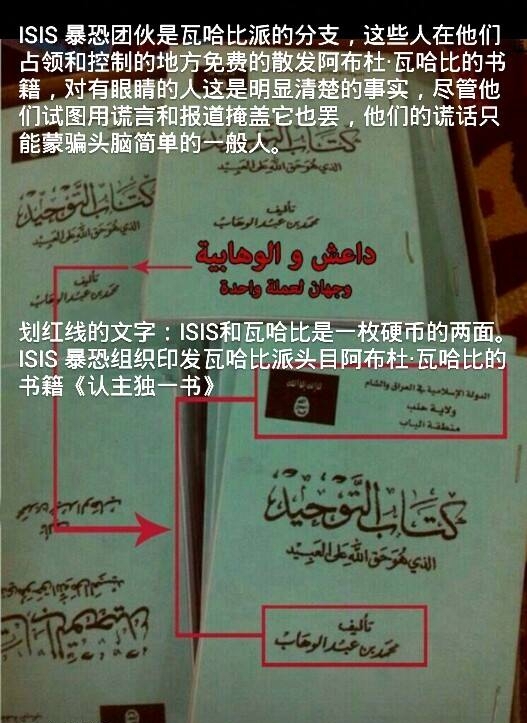 ISIS 暴恐团伙是瓦哈比派的分支，这些人在他们
占领和控制的地方免费的散发阿布杜·瓦哈比的书
籍，对有眼睛的人这是明显清楚的事实，尽管他
们试图用谎言和报道掩盖它也罢，他们的谎话只
能蒙骗头脑简单的一般人。
كتاب التوحيد
الذي هو حق الله على العبيد
تأليف
محمد بن عبد الوهاب
الذي هو حق الله على العبيد
تأليف
محمد بن عبد الوهاب
داعش و الوهابية
وجهان لعملة واحدة
划红线的文字：ISIS和瓦哈比是一枚硬币的两面。
ISIS 暴恐组织印发瓦哈比派头目阿布杜·瓦哈比的
书籍《认主独一书》
الدولة الإسلامية في العراق والشام
ولاية حلب
منطقة الباب
كتاب التوحيد
الذي هو حق الله على العبيد
تأليف
محمد بن عبد الوهاب